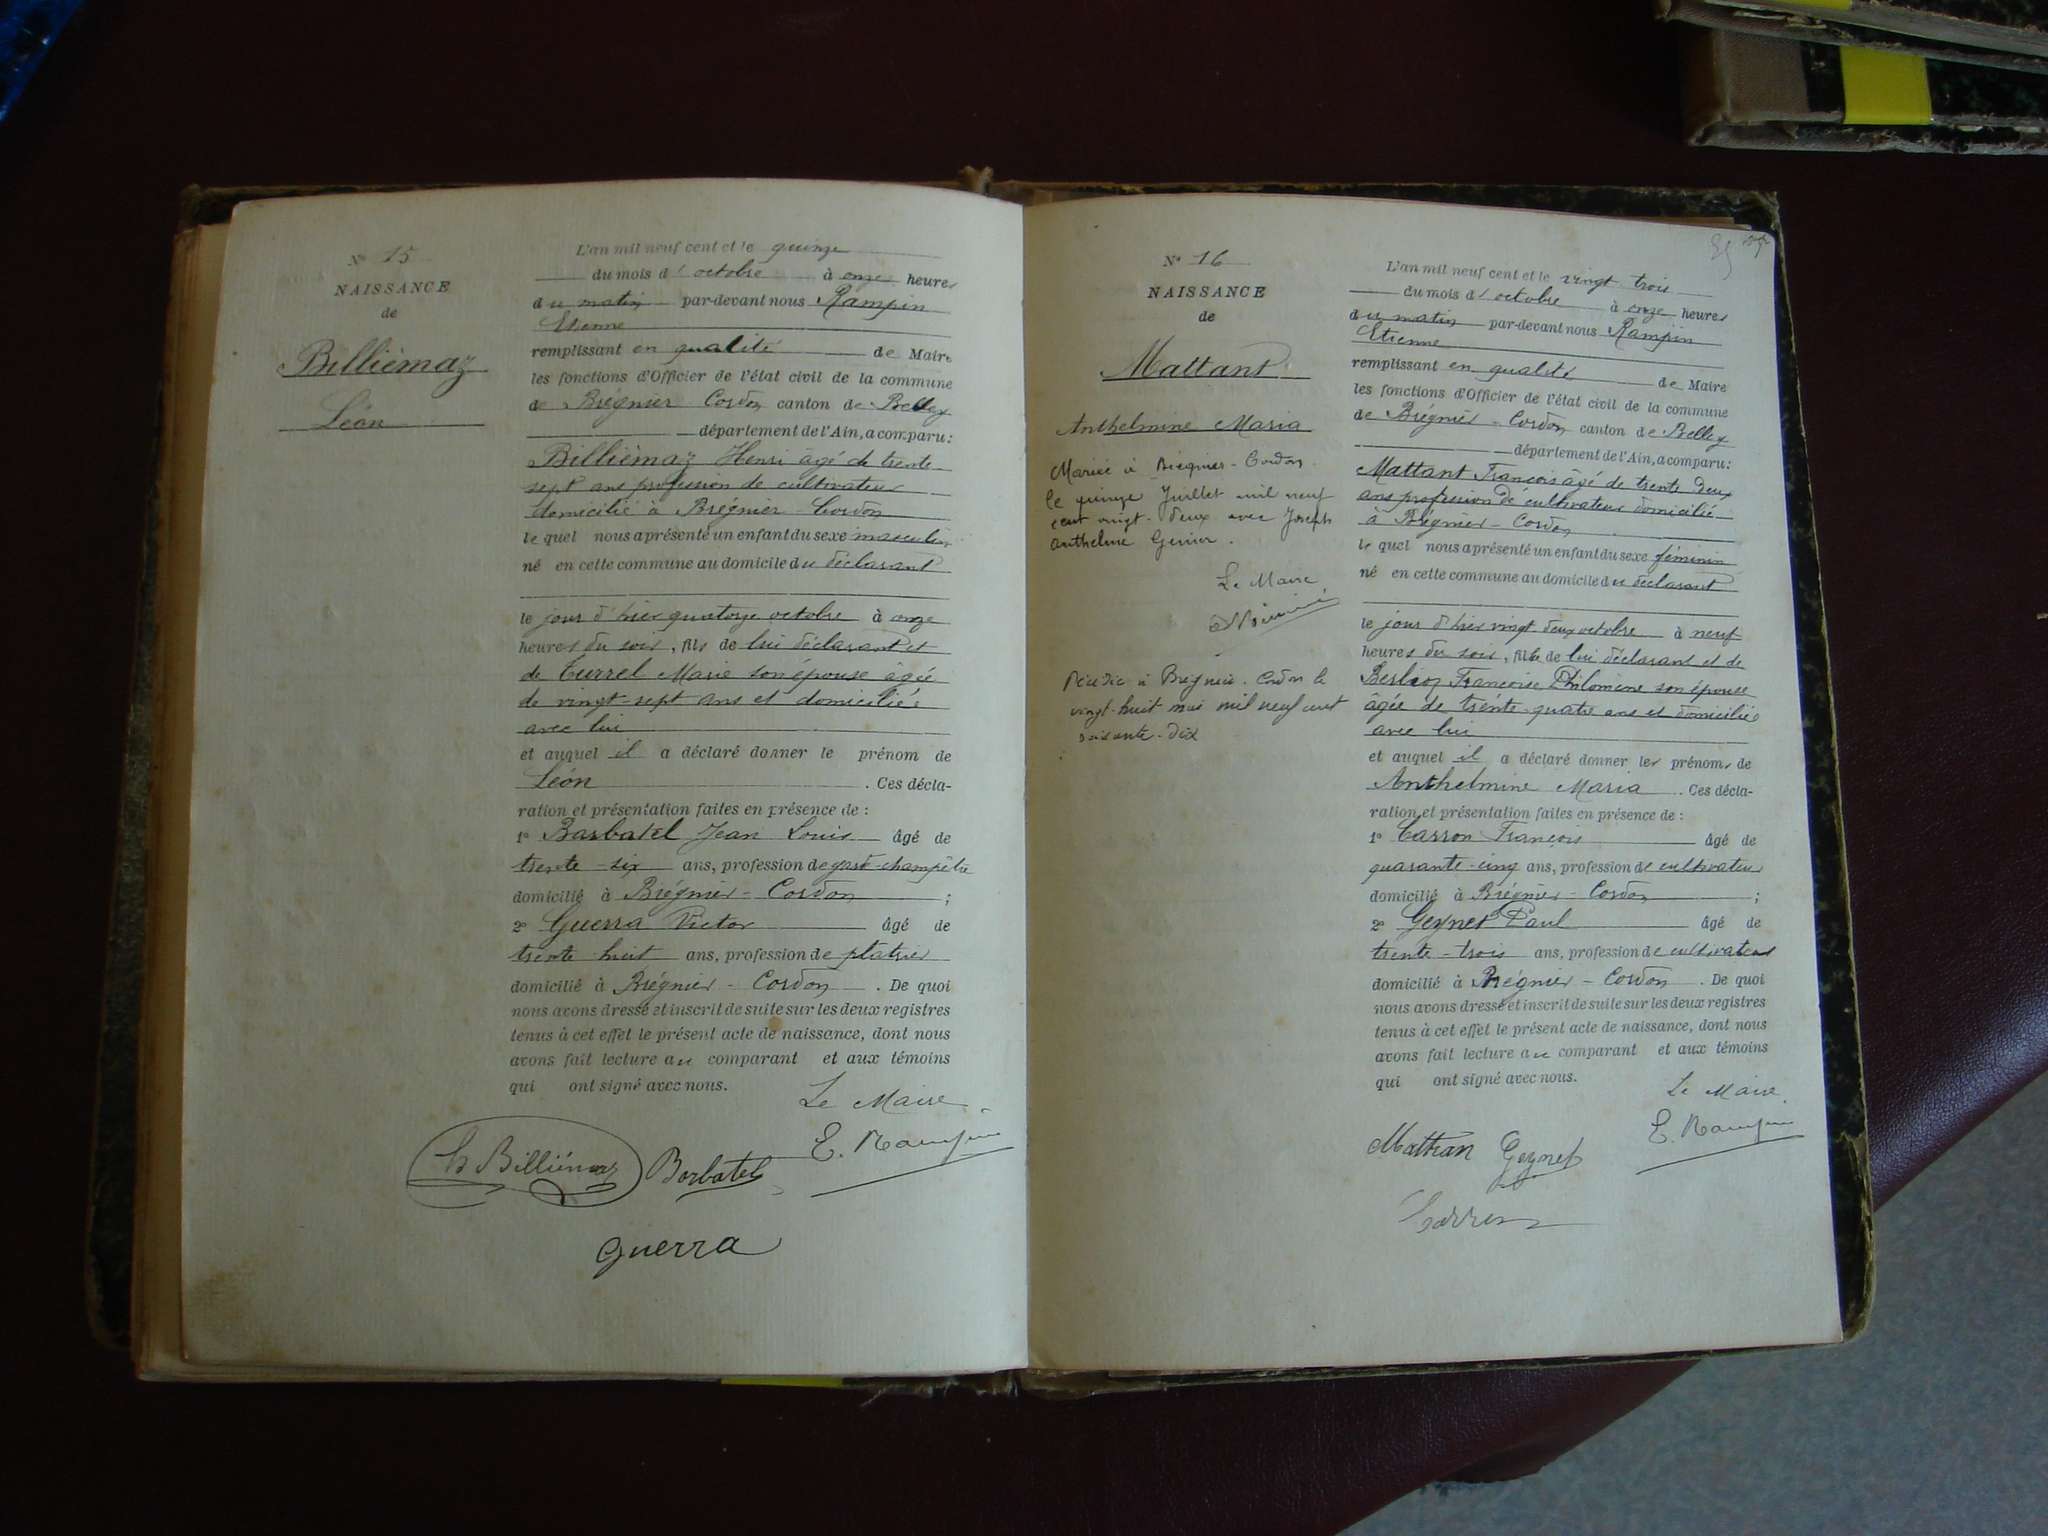 N° 15
NAISSANCE
de
Billiémaz
Léon
L'an mil neuf cent et le quinze
du mois d'octobre à onze heures
du matin par-devant nous Rampin
Etienne
remplissant en qualité de Maire
les fonctions d'Officier de l'état civil de la commune
de Brégnier Cordon canton de Belley
département de l'Ain, a comparu:
Billiémaz Henri âgé de trente
sept ans profession de cultivateur
domicilié à Brégnier-Cordon
le quel nous a présenté un enfant du sexe masculin
né en cette commune au domicile du déclarant
le jour d'hier quatorze octobre à onze
heures du soir, fils de lui déclarant et
de Turrel Marie son épouse âgée
de vingt-sept ans et domiciliée
avec lui
et auquel il a déclaré donner le prénom de
Léon . Ces décla-
ration et présentation faites en présence de :
1° Barbatel Jean Louis âgé de
trente-six ans, profession de garde-champêtre
domicilié à Brégnier-Cordon ;
2° Guerra Victor âgé de
trente huit ans, profession de platrier
domicilié à Brégnier-Cordon . De quoi
nous avons dressé et inscrit de suite sur les deux registres
tenus à cet effet le présent acte de naissance, dont nous
avons fait lecture au comparant et aux témoins
qui ont signé avec nous.
Le Maire
h Billiémaz Barbatel E. Rampin
Guerra
N° 16
NAISSANCE
de
Mattant
Anthelmine Maria
Mariée à Brégnier-Cordon
le quinze Juillet mil neuf
cent vingt-deux avec Joseph
Anthelme
Le Maire
Décédée à Brégnier-Cordon le
vingt-huit mai mil neuf cent
soixante-dix
L'an mil neuf cent et le vingt trois
du mois d'octobre à onze heures
du matin par-devant nous Rampin
Etienne
remplissant en qualité de Maire
les fonctions d'Officier de l'état civil de la commune
de Brégnier-Cordon canton de Belley
département de l'Ain, a comparu:
Mattant François âgé de trente deux
ans profession de cultivateur domicilié
à Brégnier-Cordon
le quel nous a présenté un enfant du sexe féminin
né en cette commune au domicile du déclarant
le jour d'hier vingt deux octobre à neuf
heures du soir, fille de lui déclarant et de
Berlioz Françoise Philomène son épouse
âgée de trente-quatre ans et domiciliée
avec lui
et auquel il a déclaré donner les prénoms de
Anthelmine Maria . Ces décla-
ration et présentation faites en présence de :
1° Carron François âgé de
quarante-cinq ans, profession de cultivateur
domicilié à Brégnier-Cordon ;
2° Geynet Paul âgé de
trente-trois ans, profession de cultivateur
domicilié à Brégnier-Cordon . De quoi
nous avons dressé et inscrit de suite sur les deux registres
tenus à cet effet le présent acte de naissance, dont nous
avons fait lecture au comparant et aux témoins
qui ont signé avec nous.
Le Maire
Mattran Geynet E. Rampin
Carron